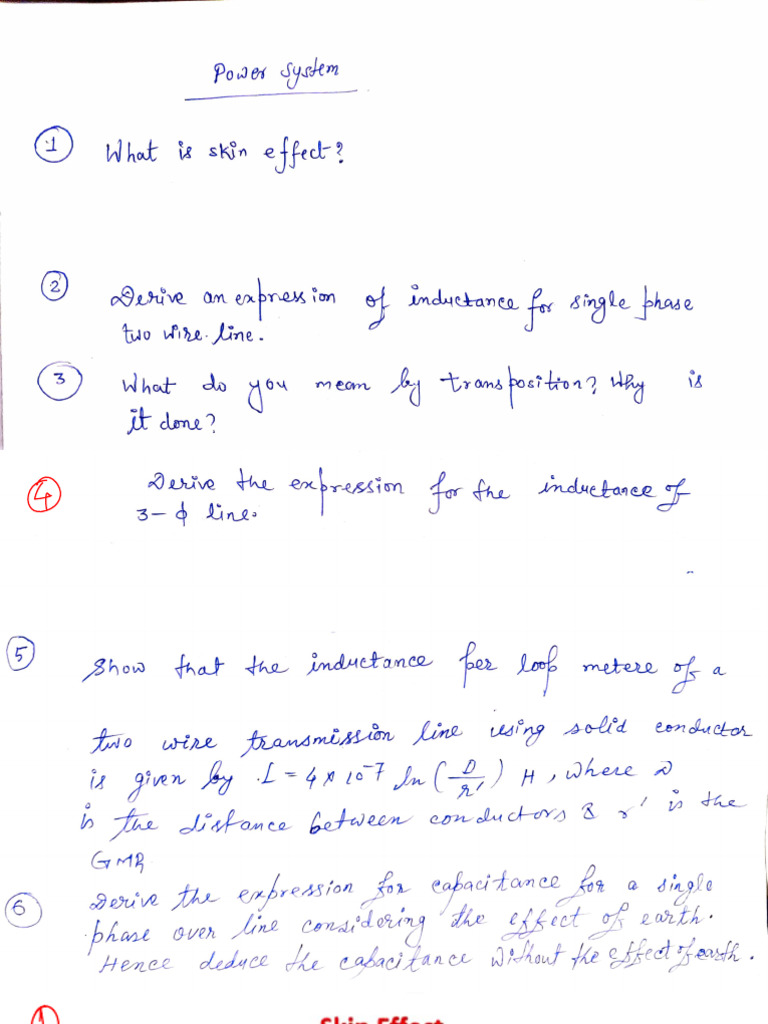 Power System
① What is skin effect?
② Derive an expression of inductance for single phase
two wire line.
③ What do you mean by transposition? Why is
it done?
④ Derive the expression for the inductance of
3-ϕ line.
⑤ Show that the inductance per loop metere of a
two wire transmission line using solid conductor
is given by L = 4 × 10⁻⁷ ln (D/r') H, where D
is the distance between conductors & r' is the
GMR
⑥ Derive the expression for capacitance for a single
phase over line considering the effect of earth.
Hence deduce the capacitance without the effect of earth.
① Skin Effect